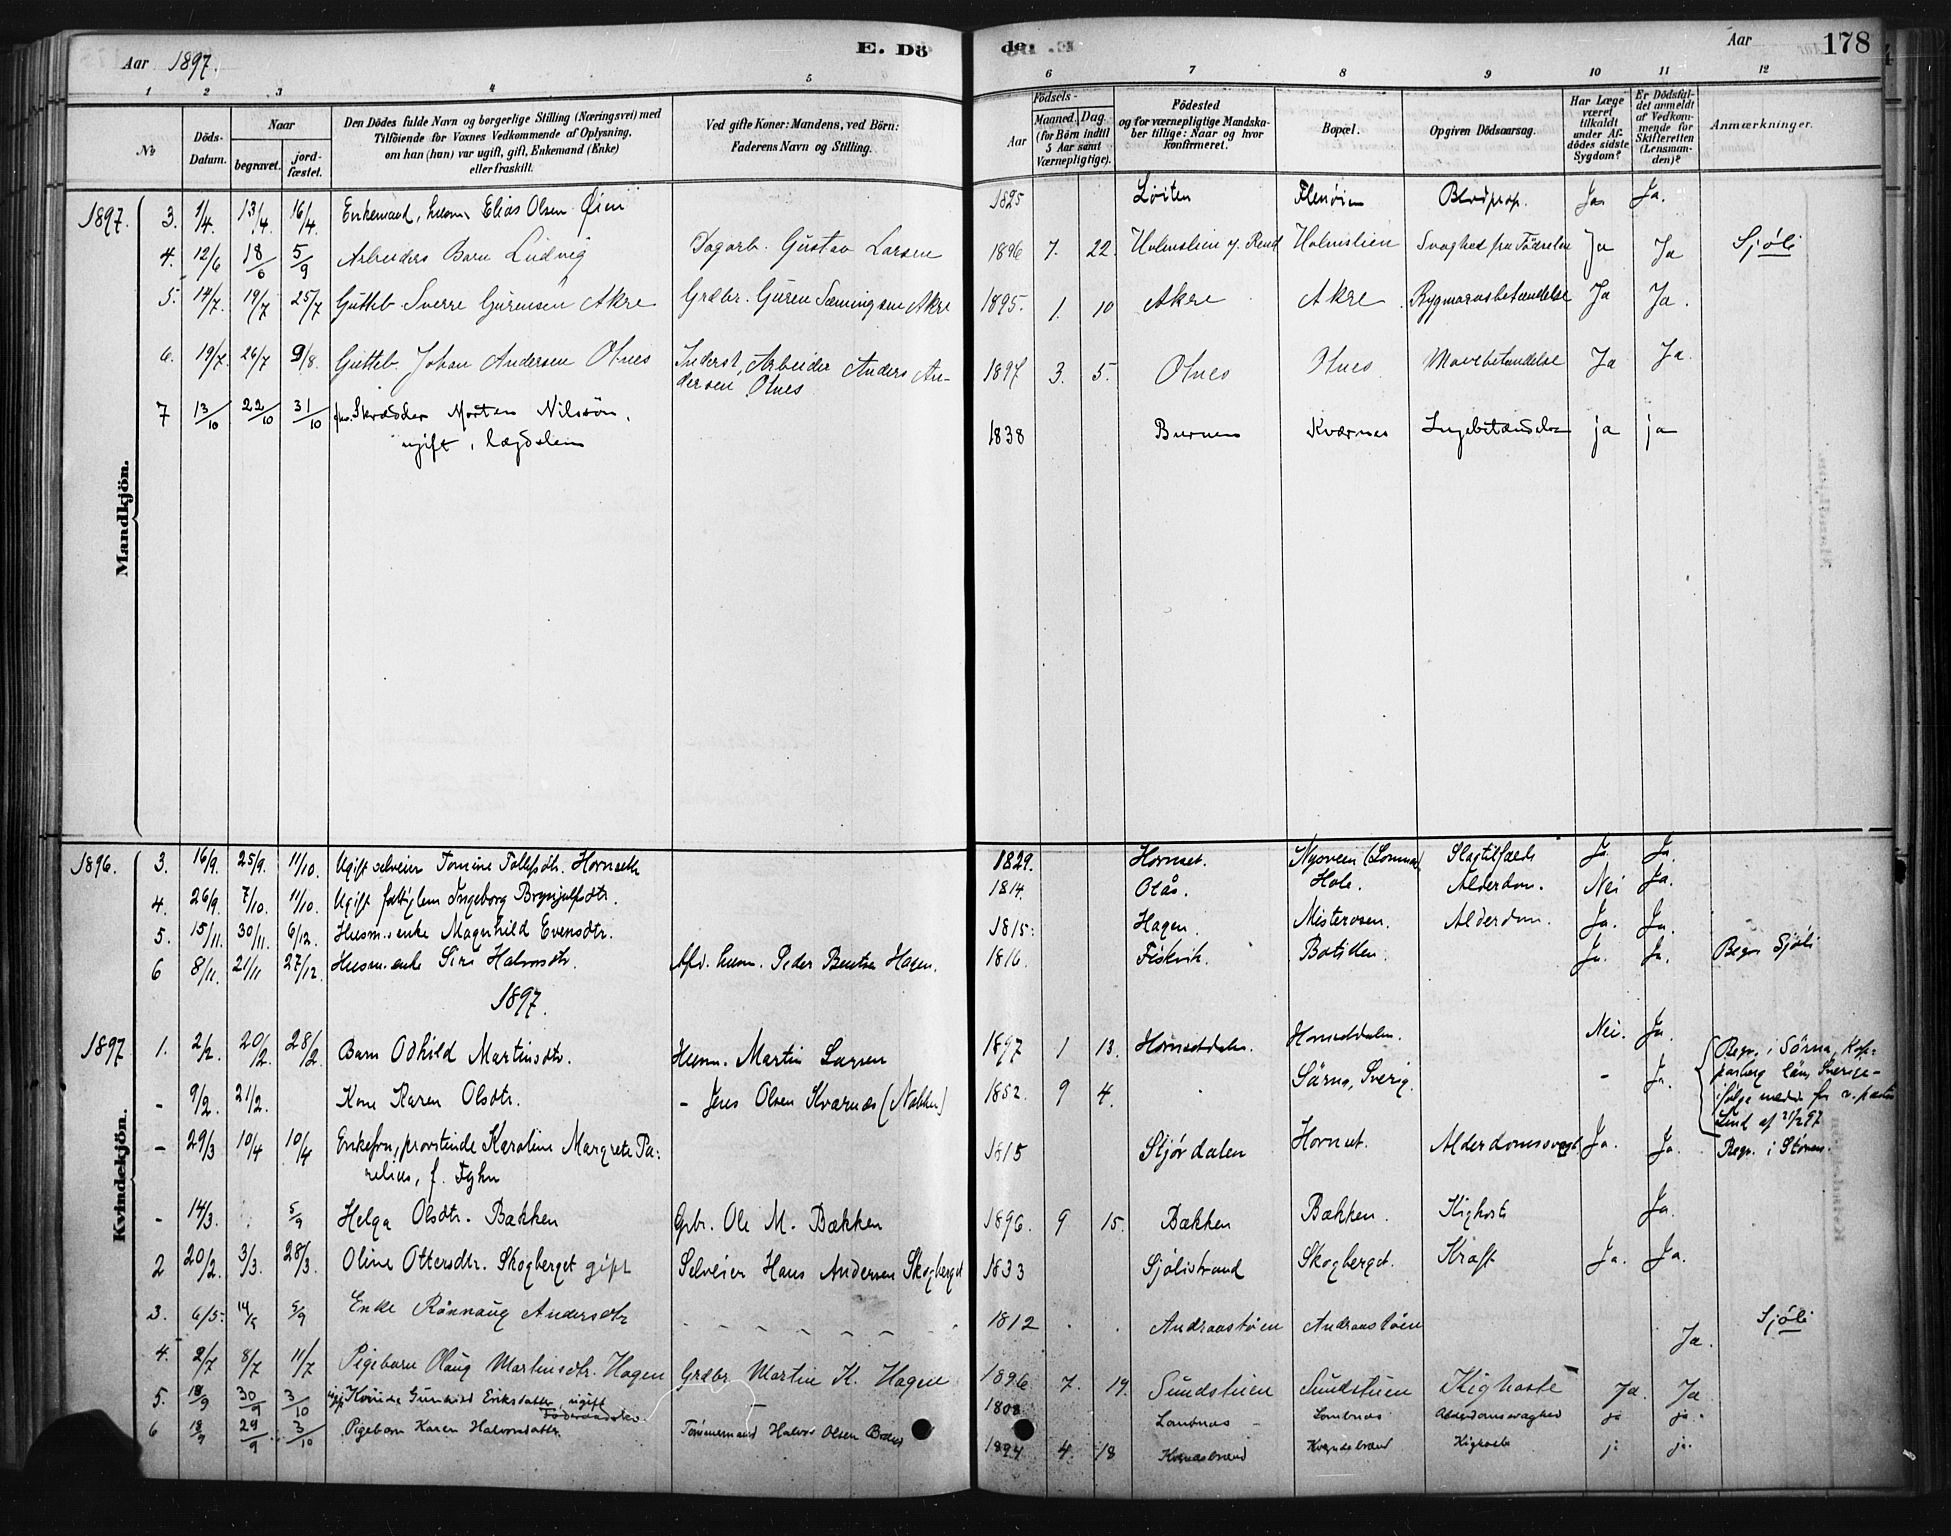 Aar 1897.
E. Dö
de. E.
Aar
178
1 2 3 4 5 6 7 8 9 10 11 12
No
Döds-Datum.
Naar
begravet.
jord-fæstet.
Den Dödes fulde Navn og borgerlige Stilling (Næringsvei) med
Tilföiende for Voxnes Vedkommende af Oplysning,
om han (hun) var ugift, gift, Enkemand (Enke)
eller fraskilt.
Ved gifte Koner: Mandens, ved Börn:
Faderens Navn og Stilling.
Födsels-
Aar
Maaned. Dag.
(for Börn indtil
5 Aar samt
Værnepligtige).
Födested
og for værnepligtige Mandska-
ber tillige: Naar og hvor
konfirmeret.
Bopæl.
Opgiven Dödsaarsag.
Har Læge
været
tilkaldt
under Af-
dödes sidste
Sygdom?
Er Dödsfal-
det anmeldt
af Vedkom-
mende for
Skifteretten
(Lensman-
den)?
Anmærkninger.
Mandkjön.
1897. 3. 1/4. 13/4. 16/4. Enkemand, husm. Elias Olsen Øien 1825 Løiten Flenøien Blodprop. Ja Ja.
4. 12/6 18/6 5/9 Arbeiders Barn Ludvig Dagarb. Gustav Larsen 1896 7. 22. Holmslien y. Rend Holmslien Svaghed fra Fødselen Ja Ja Sjøli
5. 14/7. 19/7 25/7 Gutteb. Sverre Gurensen Akre Grdbr. Guren Sæmingsen Akre 1895. 1. 10 Akre Akre Rygmarvsbetændelse Ja Ja.
6. 19/7. 26/7 9/8. Gutteb. Johan Andersen Otnes Inderst, Arbeider Anders An-
dersen Otnes 1897 3. 5. Otnes Otnes Mavebetændelse Ja Ja.
7 13/10 22/10 31/10 Skrædder Morten Nilssøn,
ugift, lægdslem 1838 Kværnes Lungebetændelse ja ja
Kvindekjön.
1896. 3. 16/9. 25/9. 11/10. Ugift selveier Tomine Tollefsdtr. Hornseth 1829. Hornset. Slagtilfælde Ja. Ja.
4. 26/9. 7/10. 11/10. Ugift fattiglem Ingeborg Brynjulfsdtr. 1814. Otås. Hole. Alderdom. Nei Ja.
5. 15/11. 30/11. 6/12. Husm.enke Magnhild Evensdtr. 1815. Hagen. Misterosen. Alderdom. Ja. Ja.
6 8/11. 21/11 27/12. Husm.enke Siri Halvorsdtr. Afd. husm. Peder Bentsen Hagen. 1816. Fiskvik. Ja. Ja. Begr. Sjøli
1897.
1897 1. 2/2. 20/2. 28/2 Barn Odhild Martinsdtr. Husm. Martin Larsen 1897 1 13. Hornsetdalen. Hornsetdalen. Nei. Ja.
- 9/2. 21/2. Kone Karen Olsdtr. - Jens Olsen Kværnes (Nakken) 1852. 9 4. Särna, Sverig. - Ja. Begr. i Särna, Kop-
parberg läns Sverige-
ifølge medd. fra v. pastor
Lind af 21/2 97
- 29/3 10/4 10/4 Enkefru, provstinde Karoline Margrete Pa-
relius, f. 1815 Stjørdalen Hornset. Alderdomssvagh. Ja. Ja. Begr. i Støren.
- 14/3. 5/9 Helga Olsdtr. Bakken Gbr. Ole M. Bakken 1896. 9 15. Bakken Bakken. Kighoste Ja.
2 20/2. 3/3. 28/3. Oline Ottersdtr. Skogberget gift Selveier Hans Andersen Skogberget 1833 Sjølistrand Skogberget. Kræft Ja. Ja.
3. 6/5. 5/9 Enke Rønnaug Andersdtr 1812 Andraastøien Andraastøien Ja. Sjøli
4. 2/7 8/7 11/7 Pigebarn Olaug Martinsdtr. Hagen Grdbr Martin K. Hagen 1896 7. 19. Sundstuen Sundstuen Kighoste Ja Ja
5. 18/9 30/9 3/10 Kvinde Gunhild Eriksdatter, ugift 1808 Lombnæs Lombnæs Alderdomssvaghed ja ja.
6 18/9 29/9 3/10 Pigebarn Karen Halvorsdatter Tømmermand Halvor Olsen Brænd 1894 4. 18 Kværnæsbrænd Kværnæsbrænd Kighoste ja.